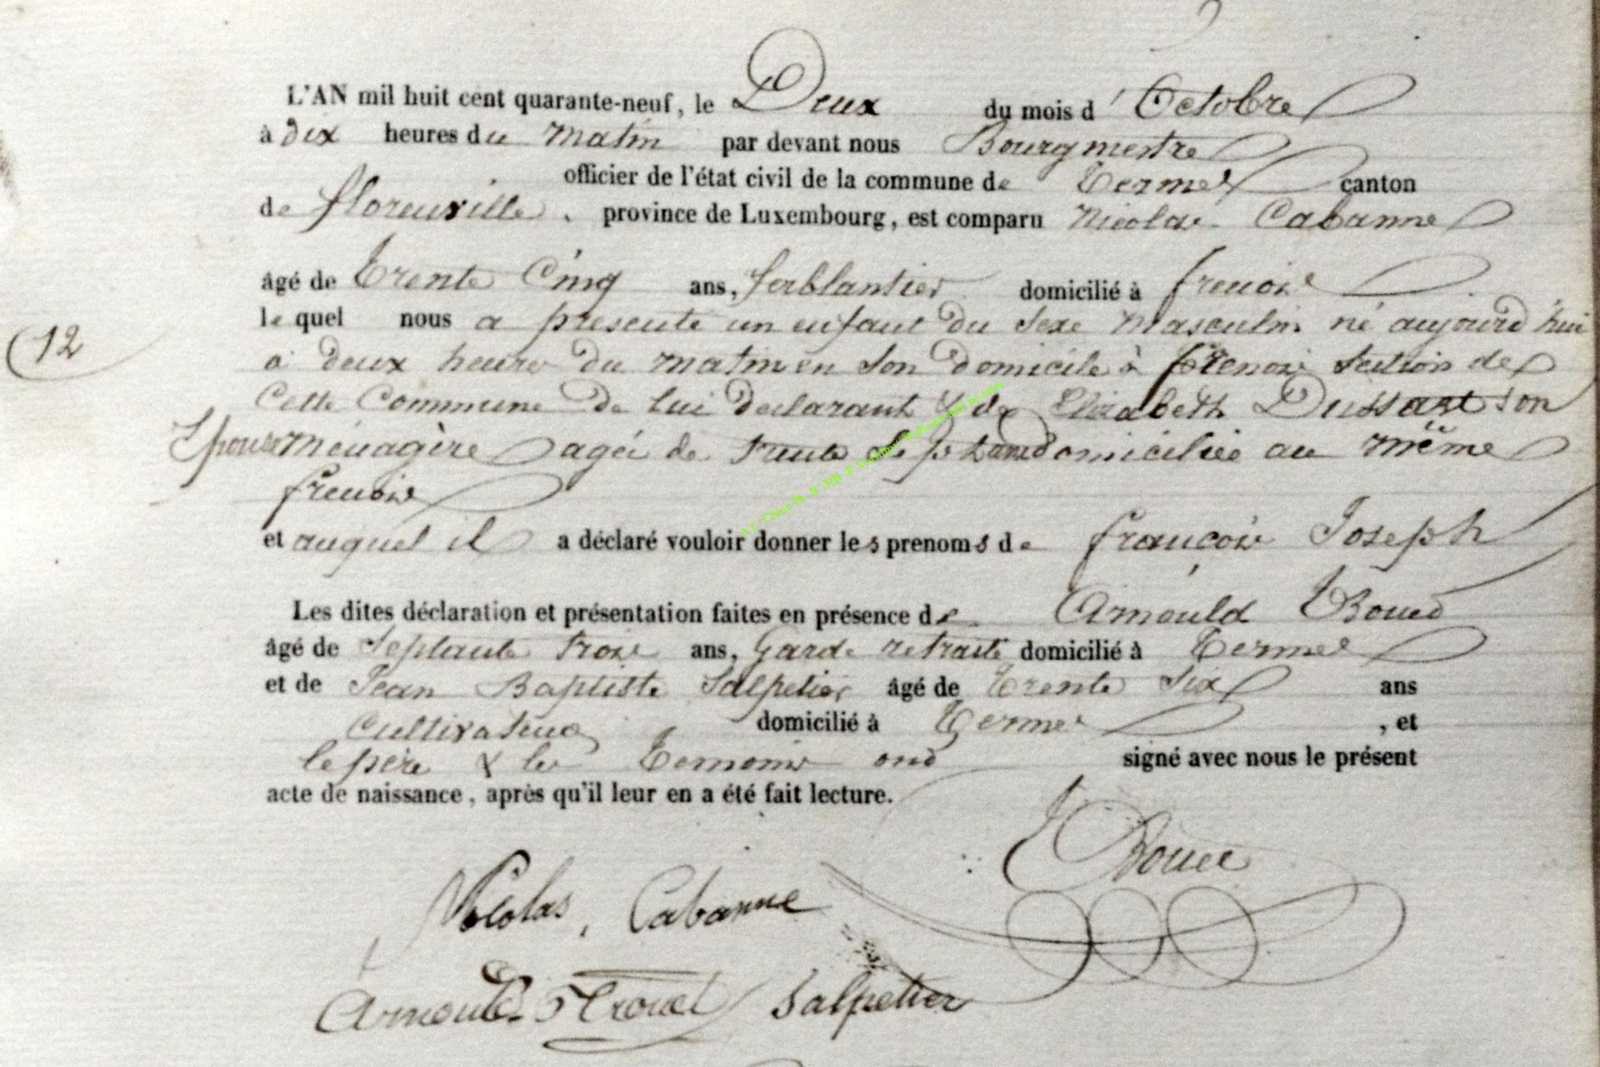 L'AN mil huit cent quarante-neuf, le Deux du mois d'Octobre
à dix heures du matin par devant nous Bourgmestre
officier de l'état civil de la commune de Termes canton
de florenville, province de Luxembourg, est comparu Nicolas Cabanne
âgé de Trente Cinq ans, ferblantier domicilié à frenois
le quel nous a présenté un enfant du sexe Masculin né aujourd'hui
12
à deux heures du matin en son domicile à frenois section de
cette Commune de lui déclarant & de Elizabeth Dussart son
Epouse ménagère agée de trente sept ans domiciliée au même
frenois
et auquel il a déclaré vouloir donner les prenoms de françois Joseph
Les dites déclaration et présentation faites en présence de Arnould
âgé de Septante trois ans, Garde retraité domicilié à Termes
et de Jean Baptiste Salpetier âgé de trente six ans
Cultivateur domicilié à Termes, et
le père & les Temoins ont signé avec nous le présent
acte de naissance, après qu'il leur en a été fait lecture.
Nicolas, Cabanne
Salpetier